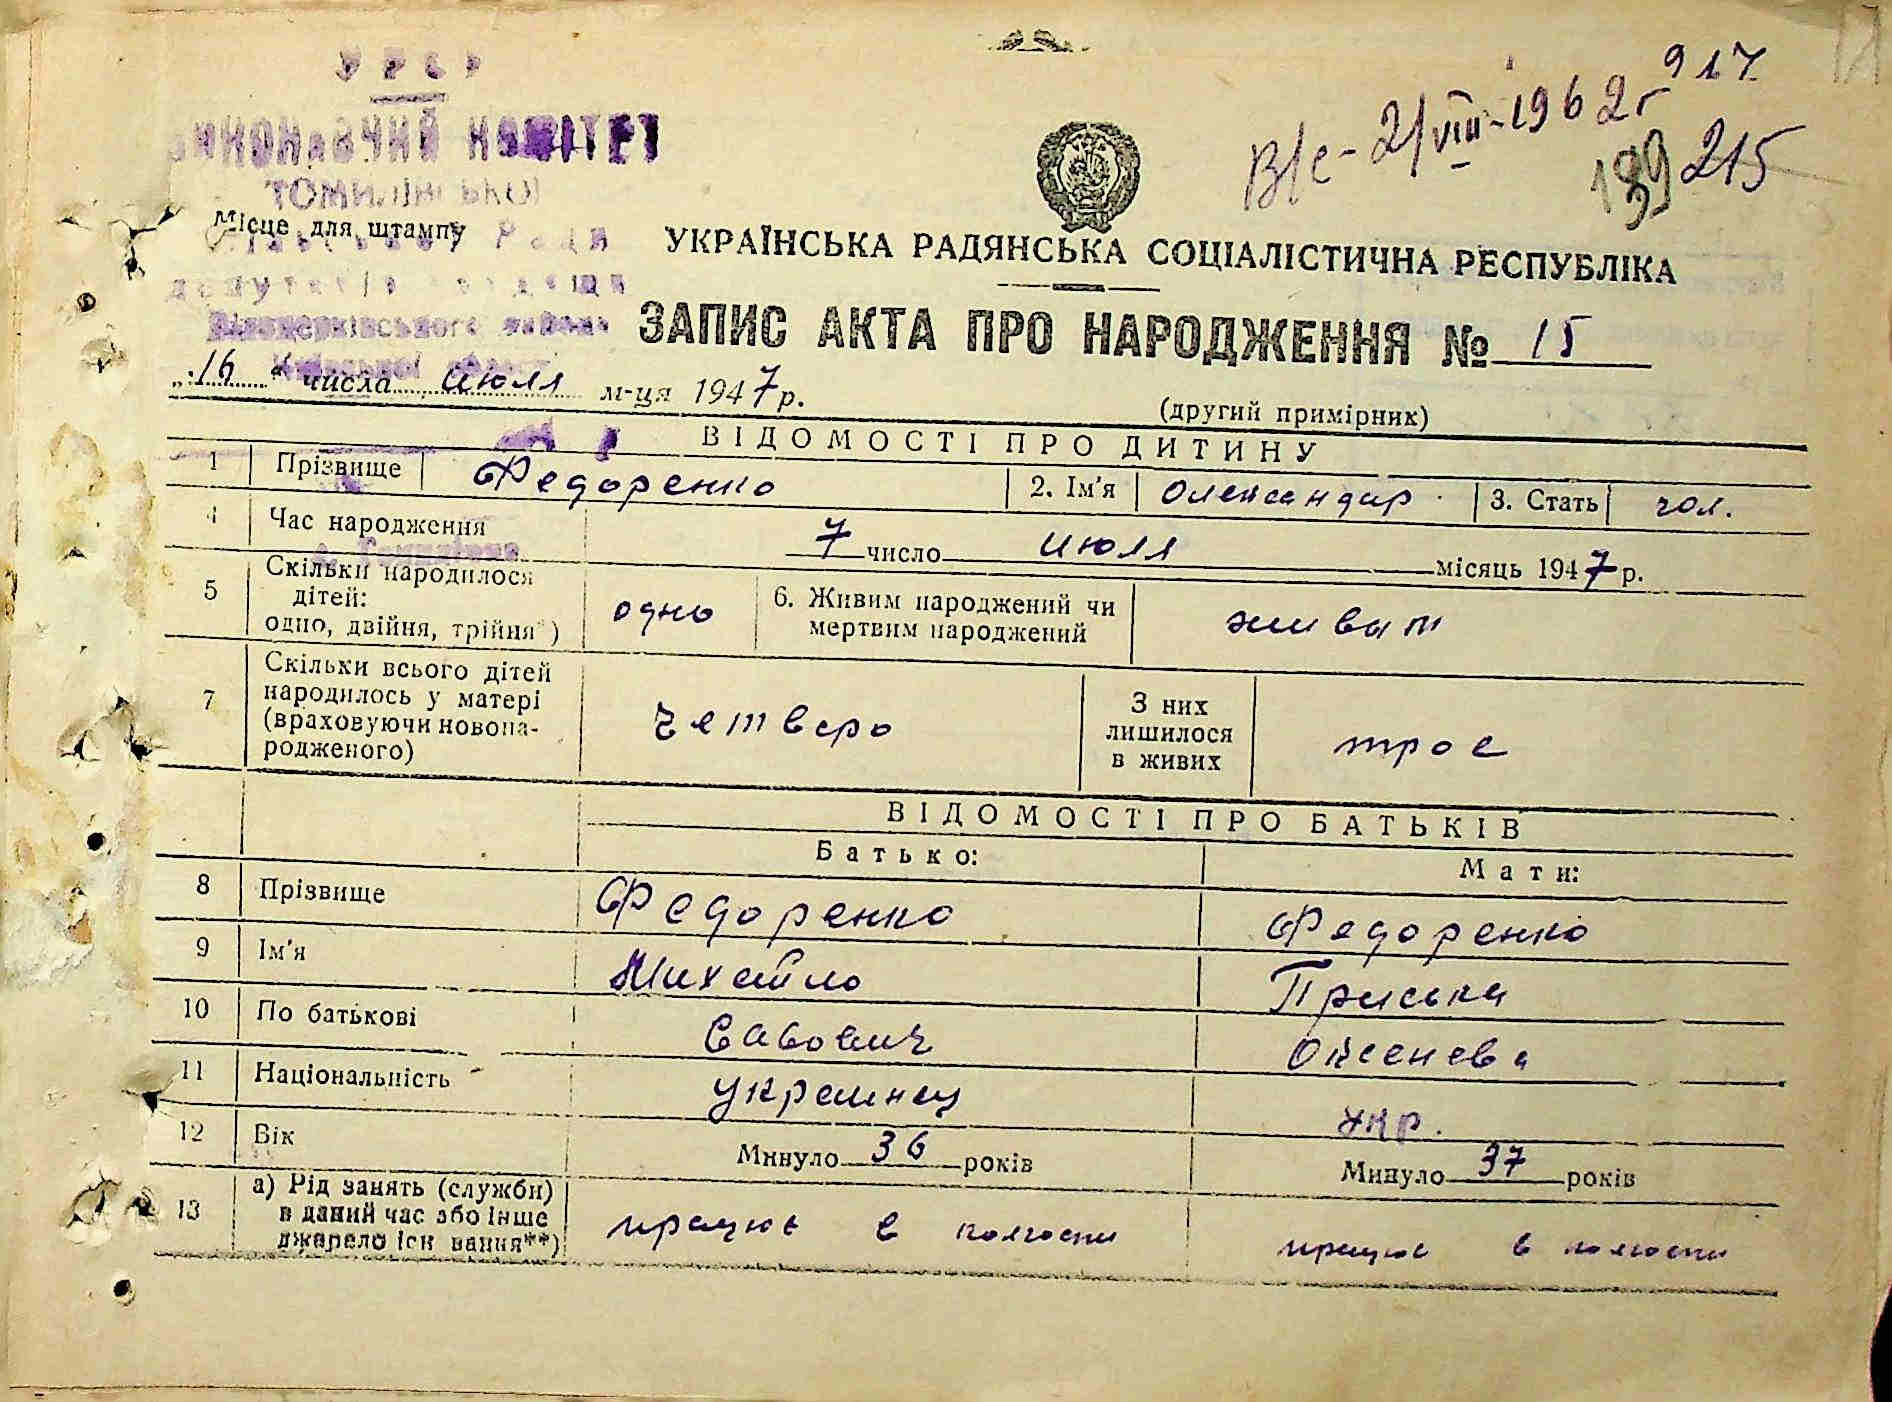 УРСР
ВИКОНАВЧИЙ КОМІТЕТ
ТОМИЛІВСЬКОЇ
Місце для штампу
Ради
депутатів трудящих
Білоцерківського району
Київської області
с. Томилівка
917
В/с - 2/VIII - 1962 г
199 215
УКРАЇНСЬКА РАДЯНСЬКА СОЦІАЛІСТИЧНА РЕСПУБЛІКА
ЗАПИС АКТА ПРО НАРОДЖЕННЯ № 15
„16“ числа июля м-ця 1947 р.
(другий примірник)
ВІДОМОСТІ ПРО ДИТИНУ
1 Прізвище Федоренко 2. Ім'я Олександр 3. Стать чол.
4 Час народження 7 число июля місяць 1947 р.
5 Скільки народилося дітей: одно, двійня, трійня*) одно 6. Живим народжений чи мертвим народжений живим
7 Скільки всього дітей народилось у матері (враховуючи новонародженого) четверо З них лишилося в живих троє
ВІДОМОСТІ ПРО БАТЬКІВ
Батько: Мати:
8 Прізвище Федоренко Федоренко
9 Ім'я Михайло Приська
10 По батькові Савович Оксенева
11 Національність украинец укр.
12 Вік Минуло 36 років Минуло 37 років
13 а) Рід занять (служби) в даний час або інше джерело існ вання**) працює в колгоспи працює в колгоспи